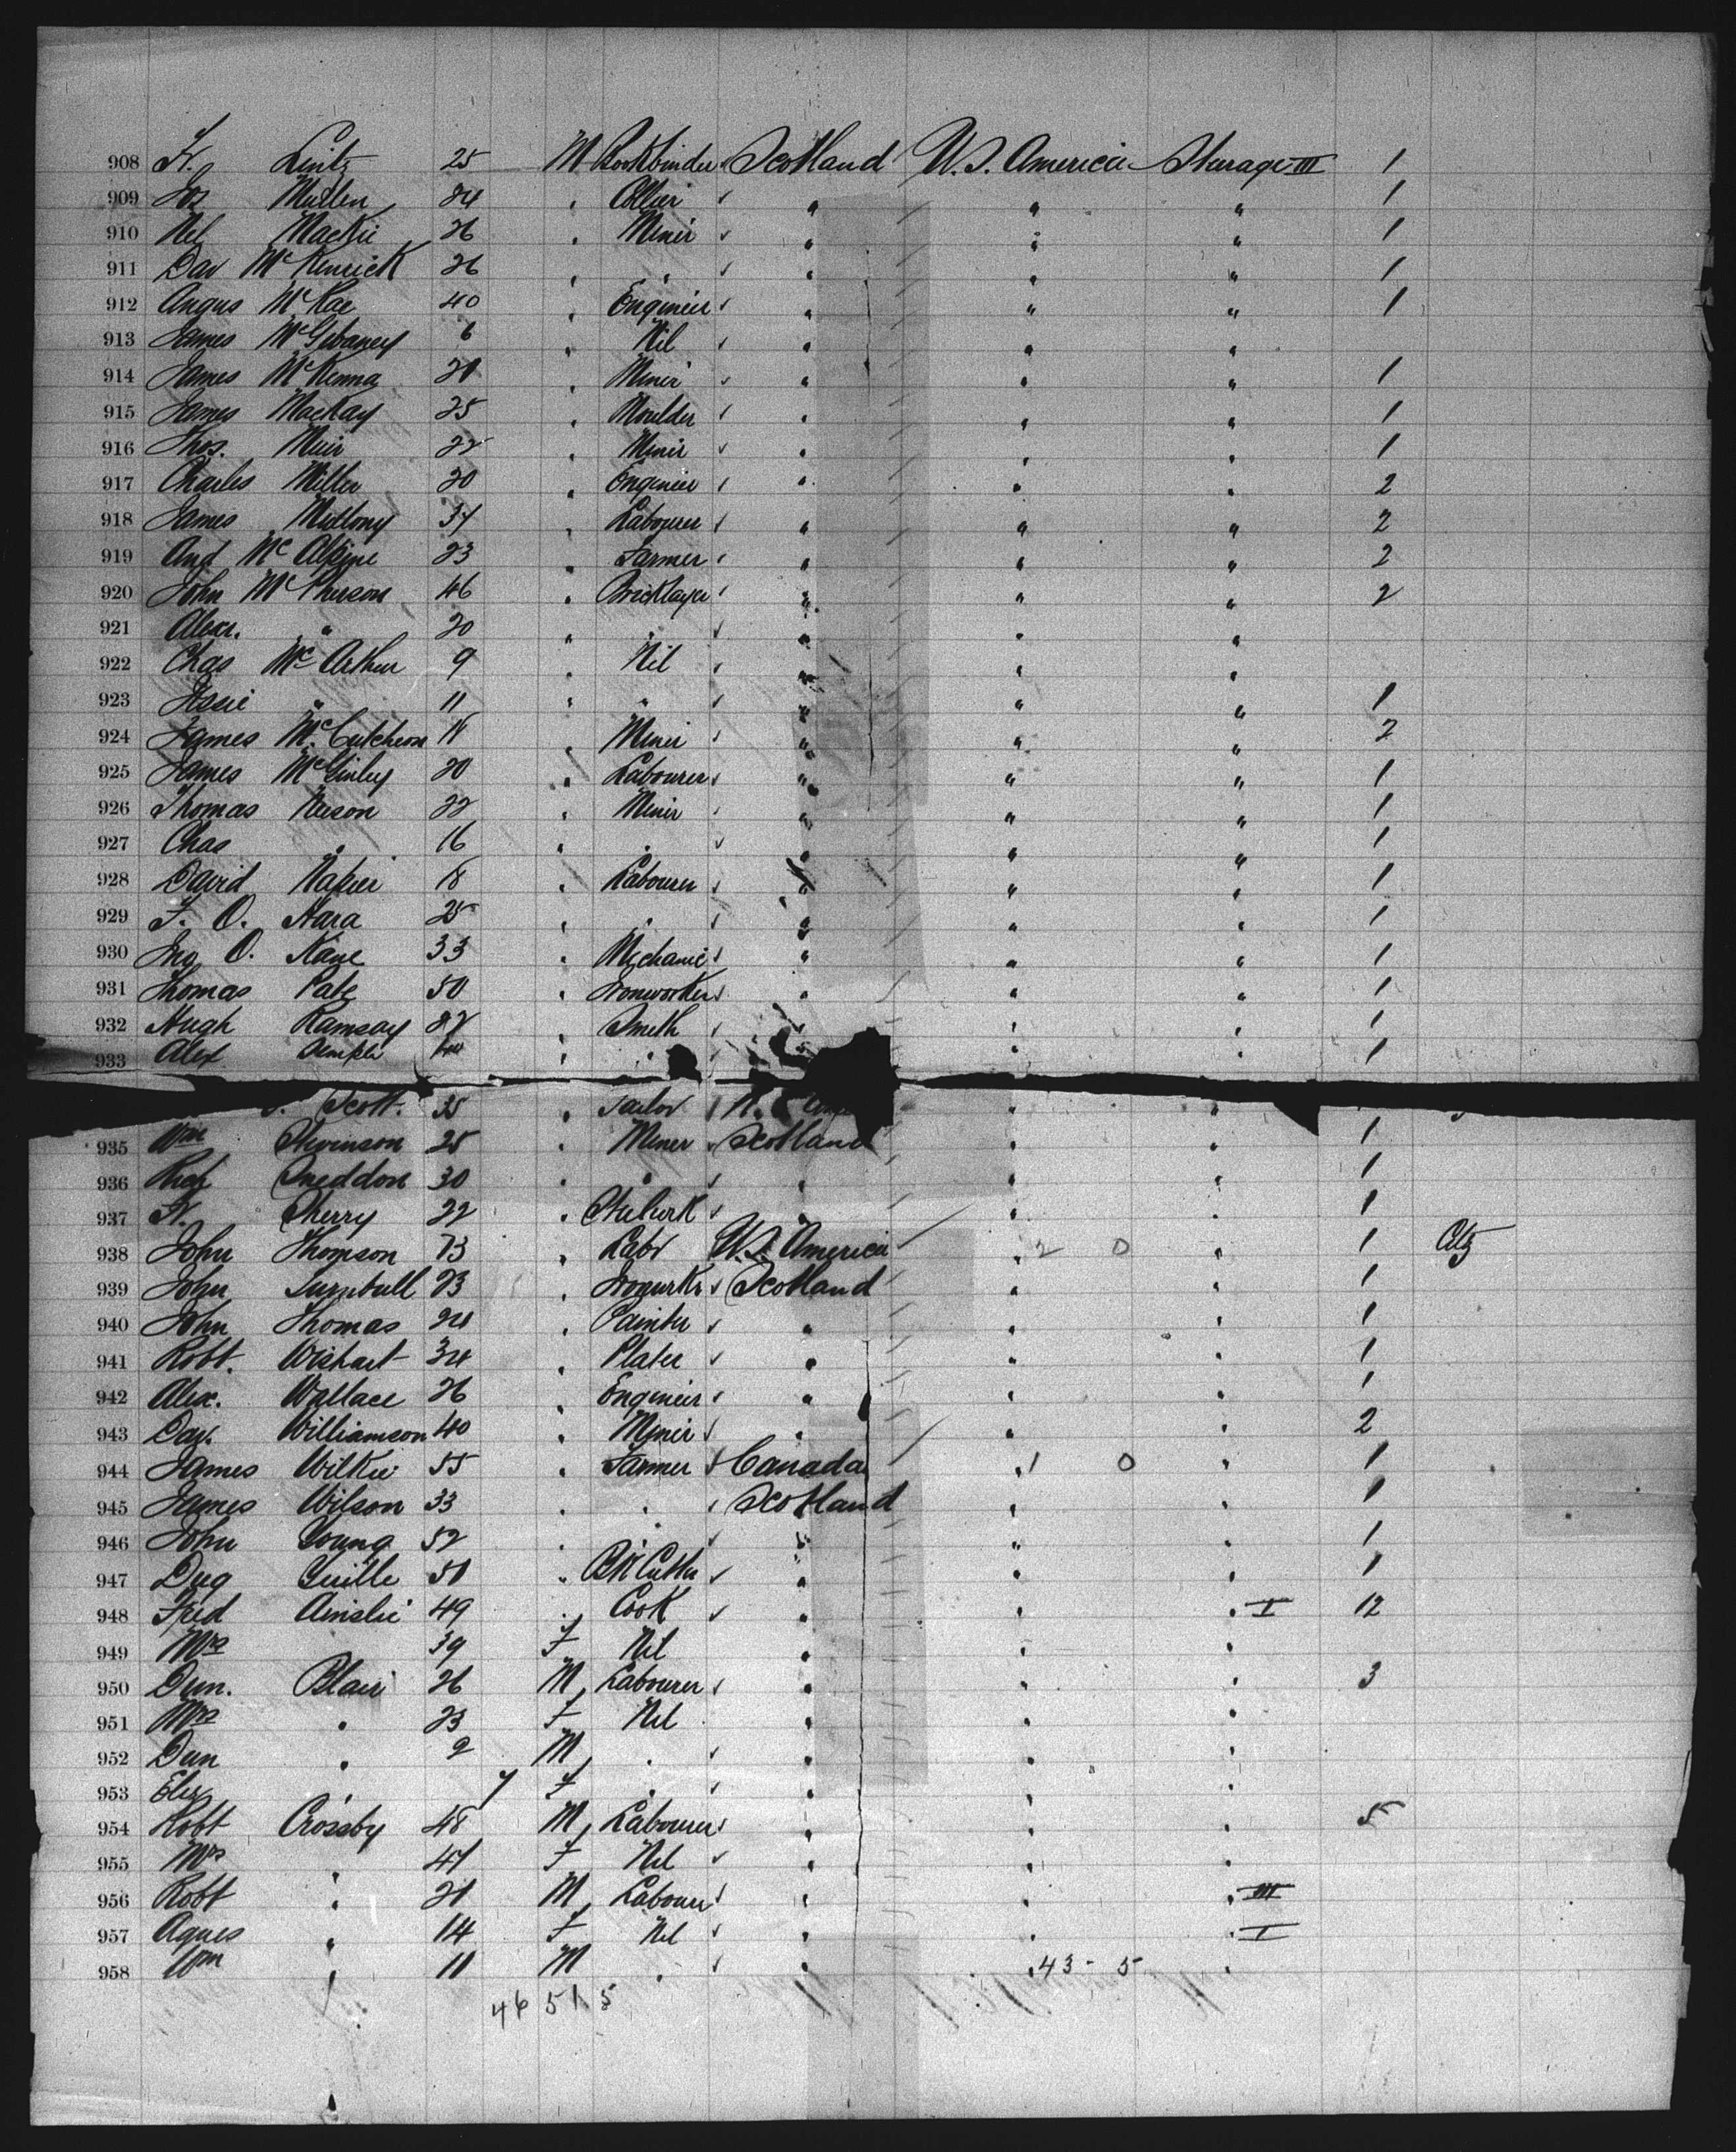 908 H. Lintz 25 M Bookbinder Scotland U.S. America Sterage III 1
909 Jas Mullen 24 " Collier " " " 1
910 Nel MacKie 26 " Miner " " " 1
911 Dav McKenrick 26 " " " " " 1
912 Angus McRae 40 " Engineer " " " 1
913 James 6 " Nil " " "
914 James McKenna 21 " Miner " " " 1
915 James MacKay 25 " Moulder " " " 1
916 Thos. Muir 22 " Miner " " " 1
917 Charles Miller 20 " Engineer " " " 2
918 James 34 " Labourer " " " 2
919 And McAlpine 23 " Farmer " " " 2
920 John McPherson 46 " Bricklayer " " " 2
921 Alexr. " 20 " " " " "
922 Chas McArthur 9 " Nil " " "
923 Jessie " 11 " " " " " 1
924 James McCutcheon 18 " Miner " " " 2
925 James McGinley 20 " Labourer " " " 1
926 Thomas Neeson 22 " Miner " " " 1
927 Chas " 16 " " " " " 1
928 David Napier 18 " Labourer " " " 1
929 F. O. Hara 25 " " " " " 1
930 Jno O. Kane 33 " Mechanic " " " 1
931 Thomas Pate 50 " Ironworker " " " 1
932 Hugh Ramsay 22 " Smith " " " 1
933 Alex Semple " " " " 1
Scott. 35 " Tailor " "
935 Wm Stevenson 25 " Miner Scotland " " 1
936 Sneddon 30 " " " " " 1
937 H. Sherry 22 " " " " 1
938 John Thomson 73 " Labr U.S. America 2 0 " 1 Citz
939 John Turnbull 23 " Ironwrkr Scotland " " 1
940 John Thomas 24 " Painter " " " 1
941 Robt. Wishart 34 " Plater " " " 1
942 Alex. Wallace 26 " Engineer " " " 1
943 Dav. Williamson 40 " Miner " " " 2
944 James Wilkie 55 " Farmer Canada 1 0 " 1
945 James Wilson 33 " " Scotland " " 1
946 John Young 52 " " " " " 1
947 Dug 50 " Cutter " " " 1
948 Fred Ainslie 49 " Cook " " " I 12
949 Mrs 39 F Nil " " "
950 Dun. Blair 26 M Labourer " " " 3
951 Mrs " 23 F Nil " " "
952 Dun " 2 M " " " "
953 Eliz " 7 F " " " "
954 Robt Crossby 48 M Labourer " " " 5
955 Mrs " 41 F Nil " " "
956 Robt " 21 M Labourer " " " III
957 Agnes " 14 F Nil " " " I
958 Wm " 11 M " " 43 - 5 "
46 51 5